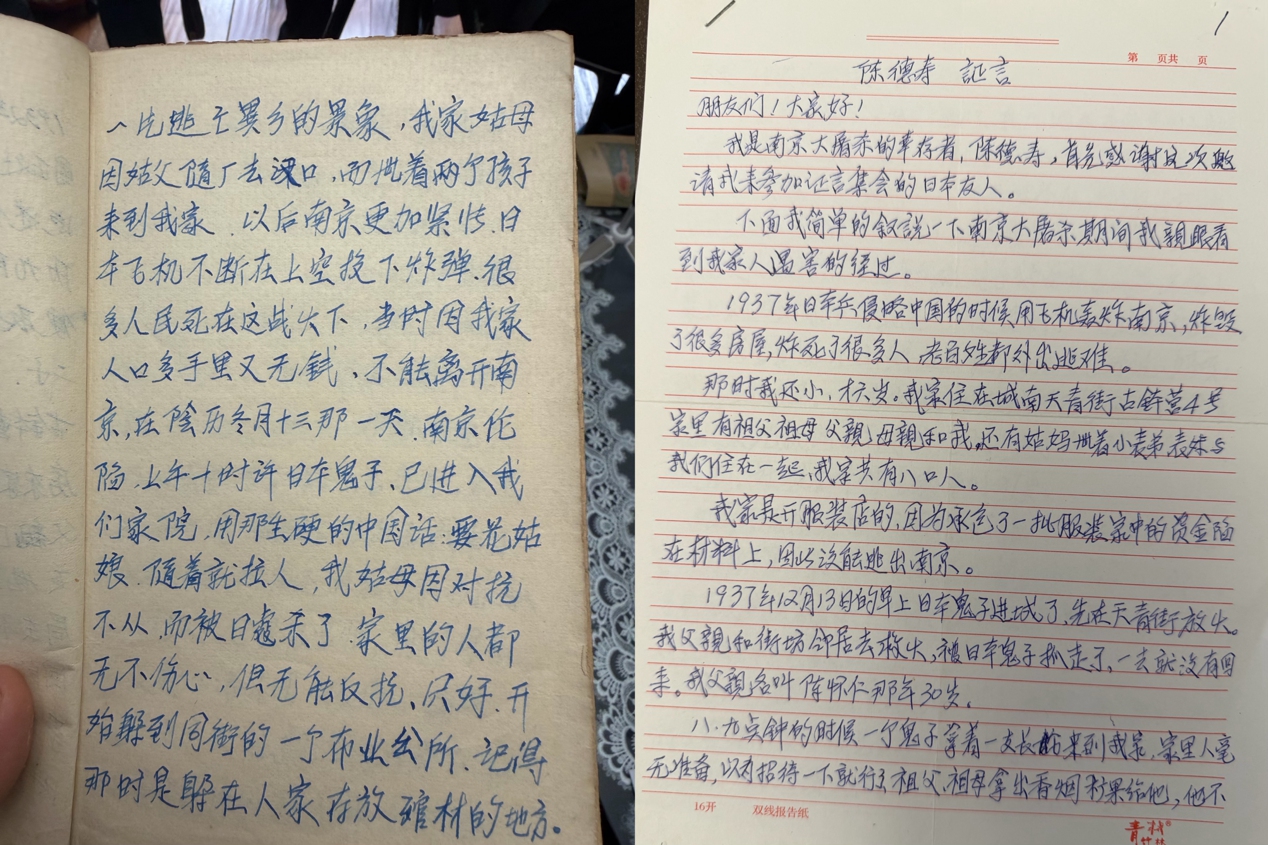 一片逃亡異乡的景象，我家姑母
因姑父随厂去汉口，而拖着两个孩子
来到我家．以后南京更加紧张．日
本飞机不断在上空投下炸弹．很
多人民死在这战火下，当时因我家
人口多手里又无钱，不能离开南
京，在陰历冬月十三那一天．南京伦
陷．上午十时许日本鬼子、已进入我
们家院，用那生硬的中国话：要花姑
娘．随着就拉人，我姑母因对抗
不从．而被日鬼杀了．家里的人都
无不伤心，但无能反抗、只好．开
始躲到同街的一个布业公所．记得
那时是躲在人家存放棺材的地方。
第 页共 页
陈德寿 証言
朋友们！大家好！
我是南京大屠杀的幸存者，陈德寿，首先感谢这次邀
请我来参加证言集会的日本友人。
下面我简单的叙説一下南京大屠杀期间我親眼看
到我家人遇害的经过。
1937年日本兵侵略中国的时候用飞机轰炸南京，炸毁
了很多房屋，炸死了很多人，老百姓都外出逃难。
那时我还小，才六岁。我家住在城南天青街古鉢营4号
家里有祖父祖母父親母親和我，还有姑妈拖着小表弟表妹与
我们住在一起，我家共有八口人。
我家是开服装店的，因为承包了一批服装家中的资金陷
在材料上，因此没能逃出南京。
1937年12月13日的早上日本鬼子进城了，先在天青街放火。
我父親和街坊邻居去救火，被日本鬼子抓走了，一去就没有回
来。我父親名叫陈怀仁那年30岁。
八、九点钟的时候一个鬼子拿着一支长枪来到我家，家里人毫
无准备，以为招待一下就行了，祖父、祖母拿出香烟糖果给他，他不
16开 双线报告纸
青竹